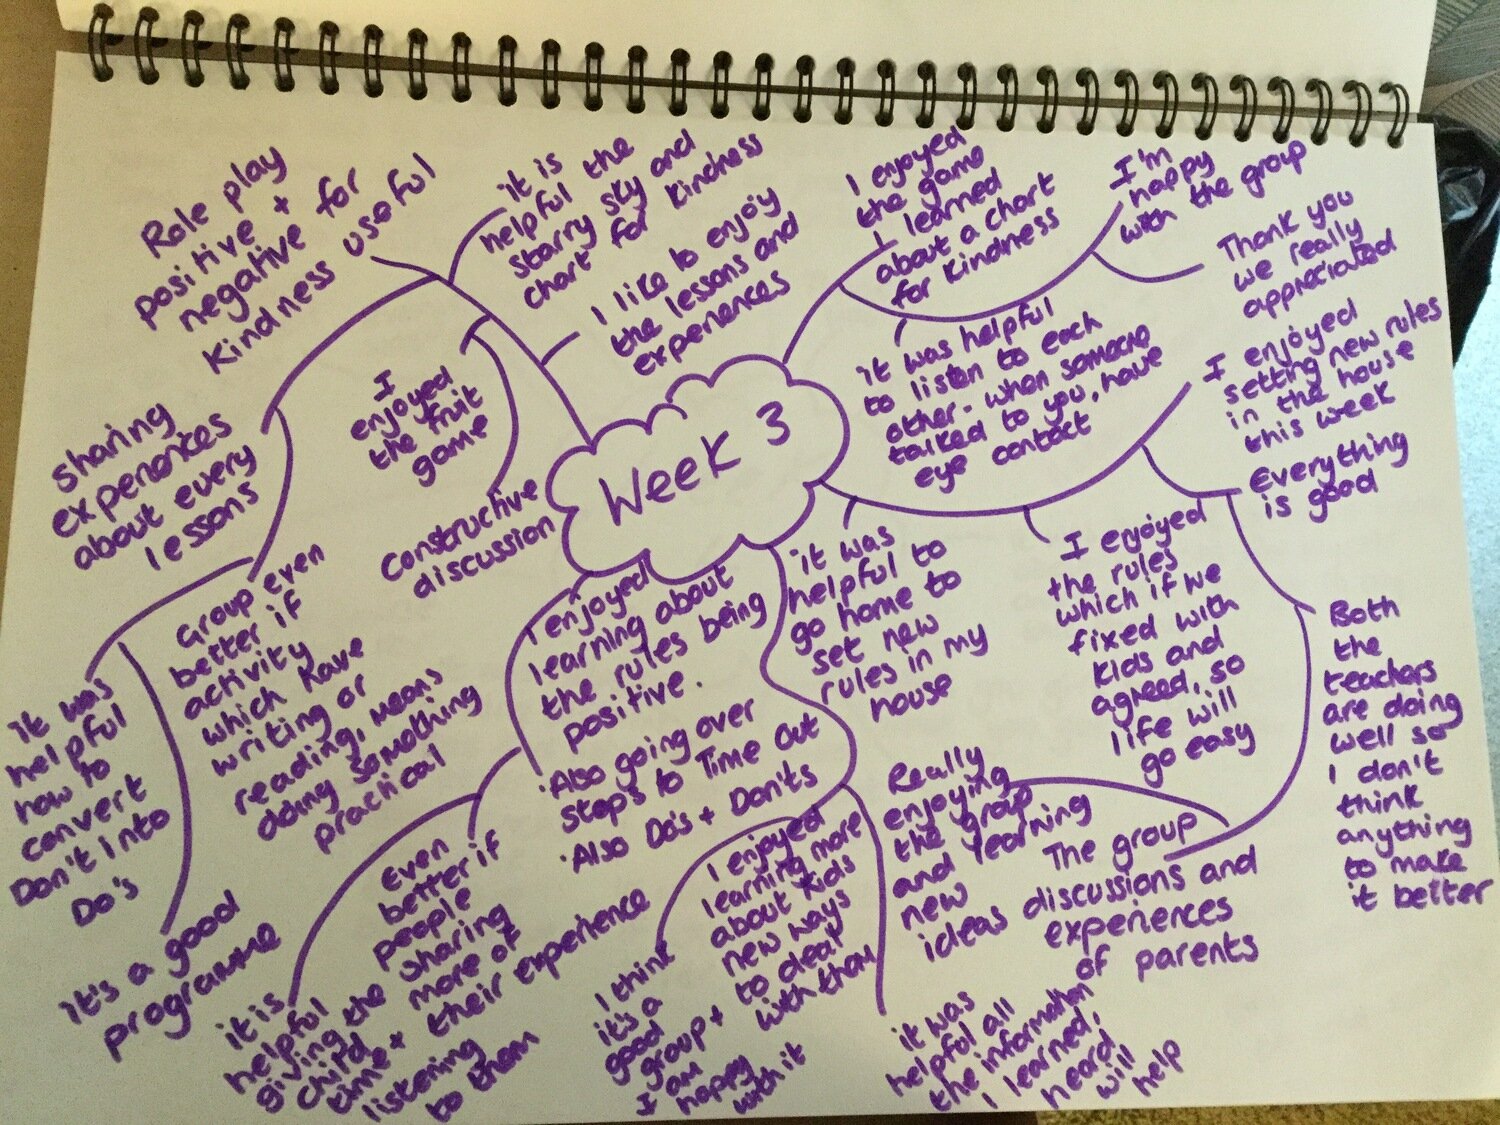 Week 3
Role play
positive +
negative for
kindness useful
it is
helpful the
starry sky and
chart for kindness
I like to enjoy
the lessons and
experiences
I
enjoyed
the fruit
game
constructive
discussion
sharing
experiences
about every
lessons
Group even
better if
activity
which have
writing or
reading, means
doing something
practical
it was
helpful
how to
convert
Don't into
Do's
it's a good
programme
I enjoyed
the game
I learned
about a chart
for kindness
I'm
happy
with the group
Thank you
we really
appreciated
it was helpful
to listen to each
other - when someone
talked to you, have
eye contact
I enjoyed
setting new rules
in the house
this week
Everything
is good
it was
helpful to
go home to
set new
rules in my
house
I enjoyed
the rules
which if we
fixed with
kids and
agreed, so
life will
go easy
Both
the
teachers
are doing
well so
I don't
think
anything
to make
it better
The group
discussions and
experiences
of parents
Really
enjoying
the group
and learning
new
ideas
I enjoyed
learning about
the rules being
positive.
·Also going over
steps to Time Out
·Also Do's + Don'ts
Even
better if
people
sharing
more of
their experience
it is
helpful
giving the
child
time +
listening
to them
I enjoyed
learning more
about kids
new ways
to deal
with them
I think
it's a
good
group +
I am
happy
with it
it was
helpful all
the information
I learned,
heard
will
help